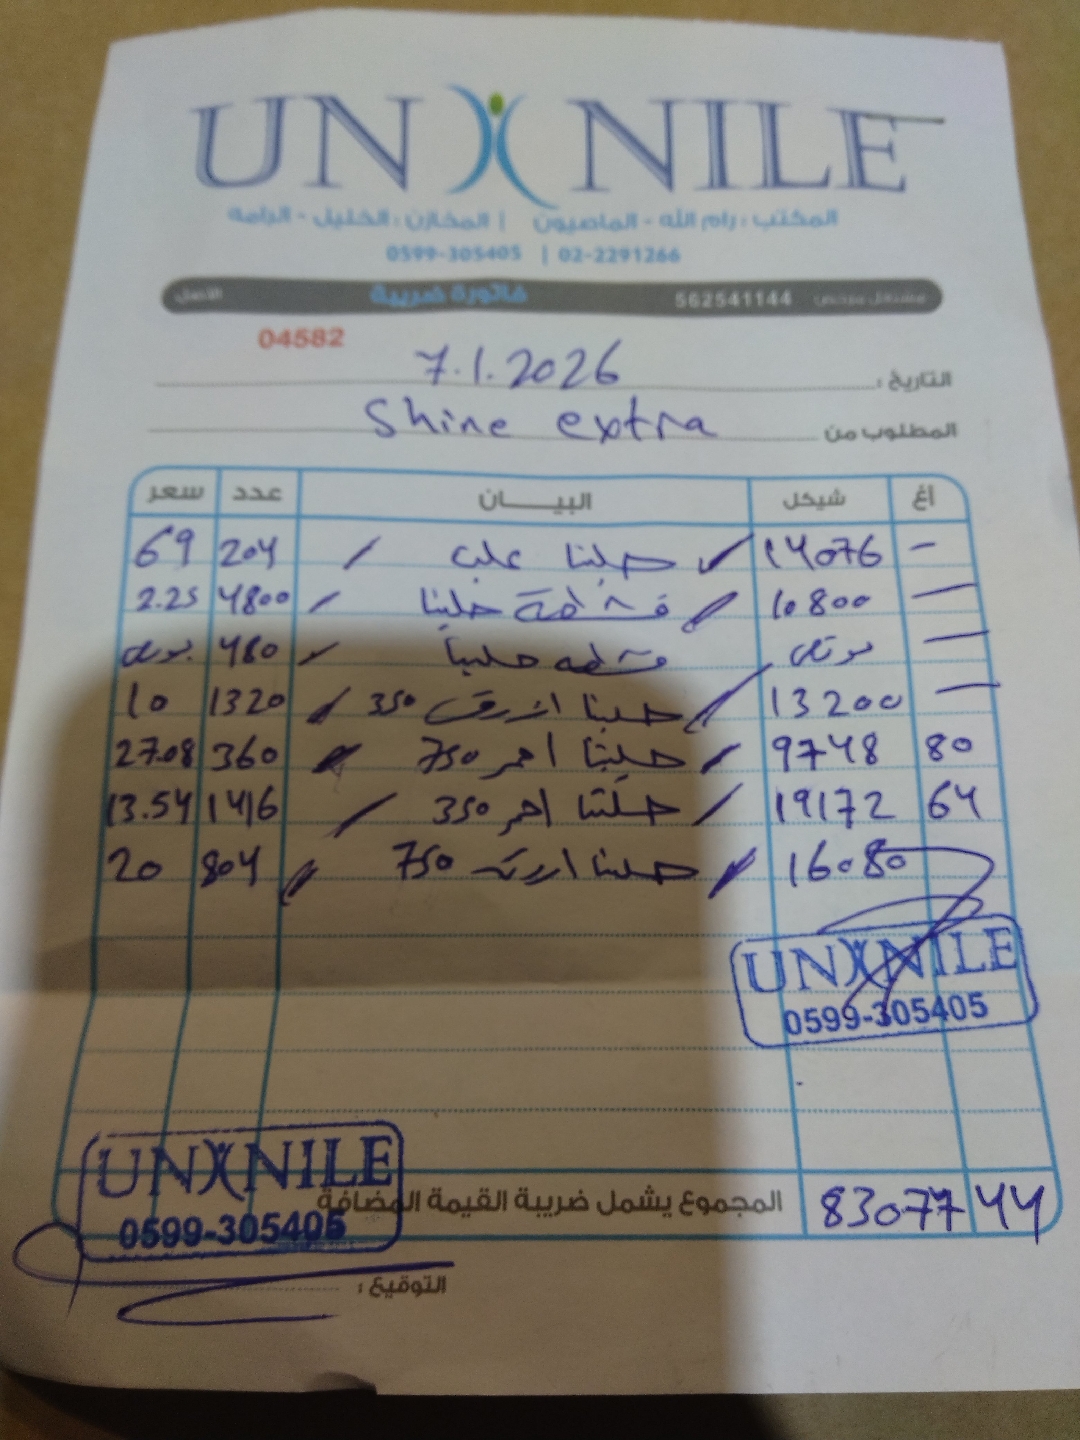 UNINILE
المكتب : رام الله - الماصيون | المخازن : الخليل - الرامة
0599-305405 | 02-2291266
مشتغل مرخص 562541144 فاتورة ضريبية الأصل
04582
التاريخ : 7.1.2026
المطلوب من Shine extra
أغ شيكل البيـــــان عدد سعر
— 14076 حليبنا علب 204 69
— 10800 حليبنا 4800 2.25
— بونص 480 بونص
— 13200 حليبنا ازرق 350 1320 10
80 9748 حليبنا احمر 750 360 27.08
64 19172 حليبنا احمر 350 1416 13.54
16080 حليبنا ازرق 750 804 20
UNINILE
0599-305405
المجموع يشمل ضريبة القيمة المضافة 83077 44
UNINILE
0599-305405
التوقيع :